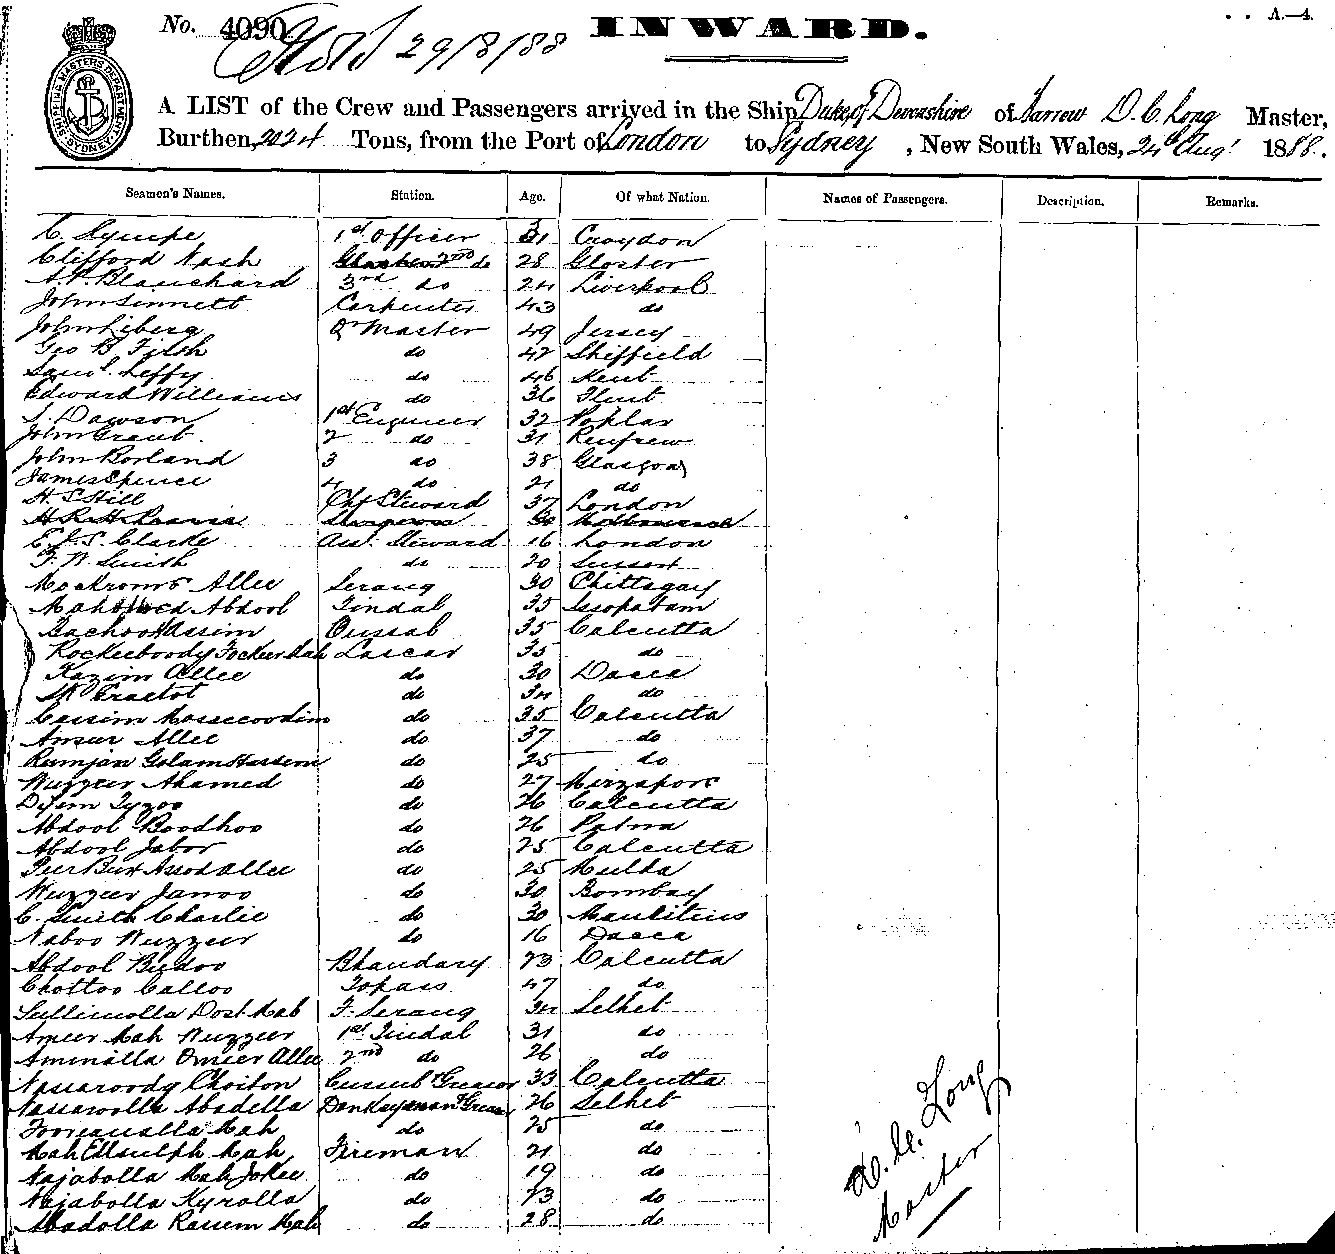 No. 4090 INWARD. A.—4.
29/8/88
SHIPPING MASTERS DEPARTMENT SYDNEY
A LIST of the Crew and Passengers arrived in the Ship Duke of Devonshire of Barrow D. C. Long Master,
Burthen, 2024 Tons, from the Port of London to Sydney, New South Wales, 24th Augt 1888.
Seamen's Names. Station. Age. Of what Nation. Names of Passengers. Description. Remarks.
1st Officer 31 Croydon
Clifford Nash 2nd do 28 Gloster
Blanchard 3rd do 24 Liverpool
John Sinnett Carpenter 43 do
John Liberg Qr Master 49 Jersey
Geo B Firth do 42 Sheffield
Saml Leffy do 46 Kent
Edward Williams do 36 Flint
S. Dawson 1st Engineer 32 Poplar
John Grant 2 do 31 Renfrew
John Borland 3 do 38 Glasgow
James Spence 4 do 21 do
H. S. Hill Chf Steward 37 London
E. J. S. Clarke Asst. Steward 16 London
F. W. Smith do 20 Sussex
Allee Serang 30 Chittagay
Mahomed Abdool Tindal 35 Issopatam
Bachoo Hassim Cussab 35 Calcutta
Lascar 35 do
Kazim Allee do 30 Dacca
do 34 do
Cassim do 35 Calcutta
Ameer Allee do 37 do
Rumjan Golam Hossein do 25 do
Wuzzeer Ahamed do 27 Mirzapore
do 26 Calcutta
Abdool Boodhoo do 26 Patna
Abdool Jabor do 25 Calcutta
Peer Bux Assod Allee do 25 Mulda
Wuzzeer Janoo do 30 Bombay
C. Smith Charlie do 30 Mauritius
Naboo Wuzzeer do 16 Dacca
Abdool Budoo Bhandary 23 Calcutta
Chottoo Calloo Topass 47 do
Sullimolla Dost Mah F. Serang 34 Selhet
Ameer Mah Wuzzeer 1st Tindal 31 do
Aminalla Omeer Allee 2nd do 26 do
Nassaroody Choiton Cussub & Greaser 33 Calcutta
Nassarolla Abadella Donkeyman & Greaser 26 Selhet
Mah do 25 do
Mah Mah Fireman 21 do
Najabolla Mah Jokee do 19 do
Najabolla Kyrolla do 23 do
Abadolla Rassem Mah do 28 do
D. C. Long
Master